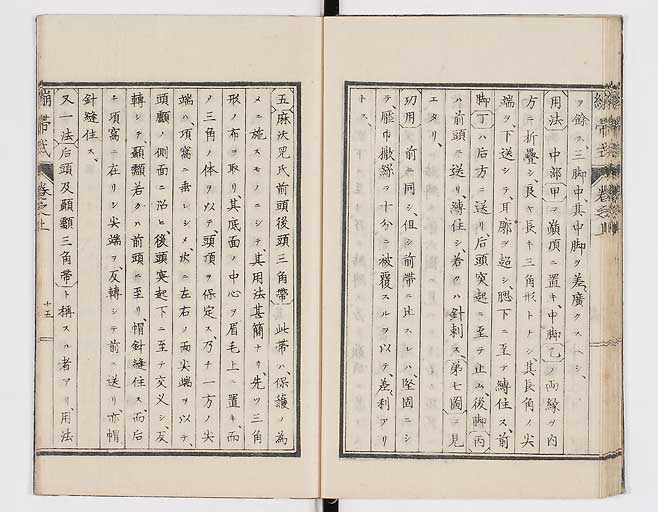 ヲ餘ス、三脚中、其中脚ヲ差廣クスヘシ、
用法 中部甲ヲ顱頂ニ置キ、中脚乙ノ両縁ヲ内
方ニ折疊シ、長ヤ長キ三角形トナシ、其長角ノ尖
端ヲ、下送シテ、耳廓ヲ超シ、腮下ニ至テ縛住ス、前
脚丁ハ后方ニ送リ、后頭突起ニ至テ止ム、後脚丙
ハ前頭ニ送リ、縛住シ、若クハ針刺ス、第七圖ニ見
エタリ、
功用 前ニ同シ、但シ前帶ニ比スレハ、堅固ニシ
テ、壓巾撒絲ヲ十分ニ被覆スルヲ以テ、差利アリ
トス、
繃帶式 卷之上
五 麻沃兒氏前頭後頭三角帶 此帶ハ、保護ノ為
メニ施スモノニシテ、其用法甚簡ナリ、先ツ三角
形ノ布ヲ取リ、其底面ノ中心ヲ眉毛上ニ置キ、而
ノ三角ノ体ヲ以テ、頭頂ヲ保定ス、乃チ一方ノ尖
端ハ、項窩ニ垂レシメ、次ニ左右ノ両尖端ヲ以テ、
頭顱ノ側面ニ沿ヒ、後頭突起下ニ至テ交叉シ、反
轉シテ、顳顬若クハ前頭ニ至リ、帽針縫住ス、而后
チ項窩ニ在リシ尖端ヲ、反轉シテ前ニ送リ、亦帽
針縫住ス、
又一法 后頭及顳顬三角帶ト稱スル者アリ、用法
繃帶式 卷之上 十五